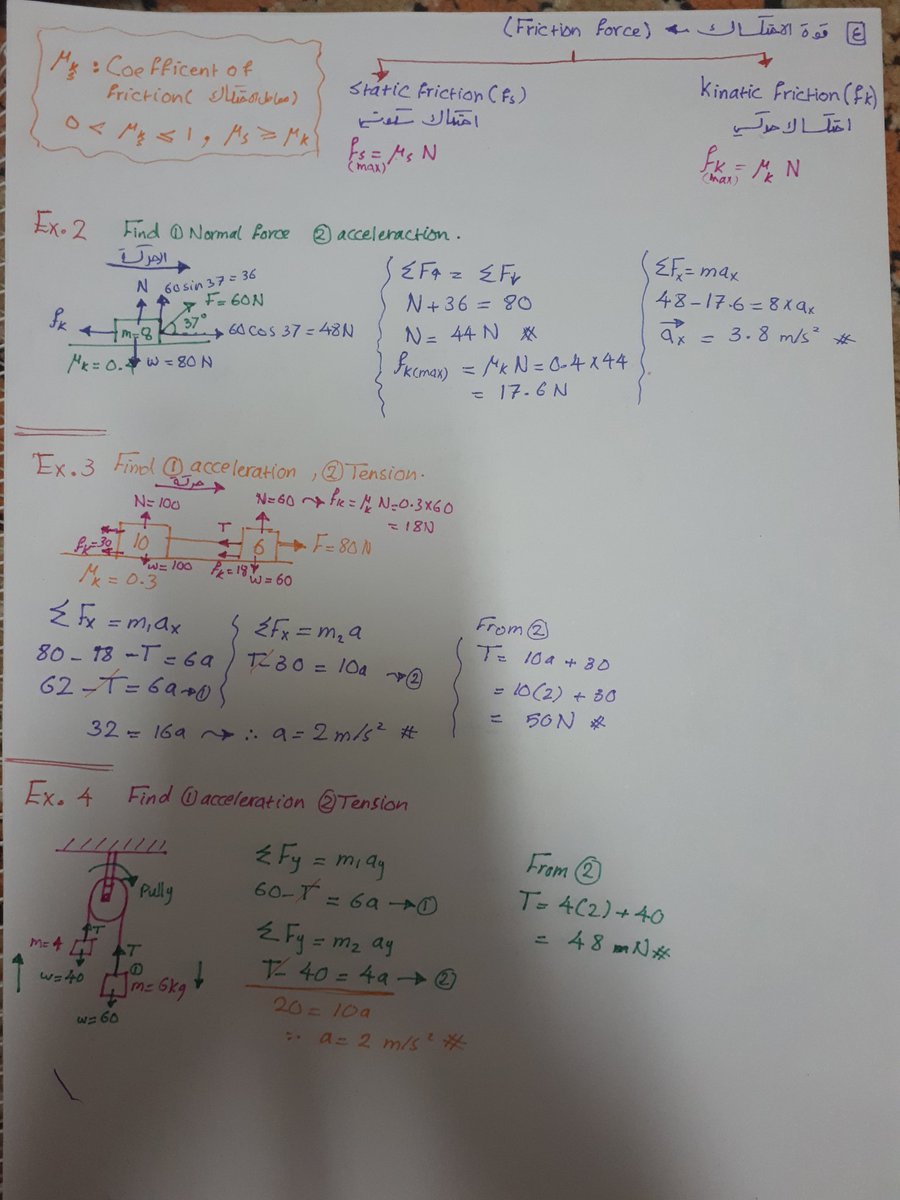 ٤ قوة الاحتكاك → (Friction force)
μs/k : Coefficent of
friction (معامل الاحتكاك)
0 < μs/k ≤ 1 , μs ≥ μk
Static friction (fs)
احتكاك سكوني
fs = μs N
(max)
Kinatic friction (fk)
احتكاك حركي
fk = μk N
(max)
Ex. 2 Find ① Normal force ② acceleraction.
الحركة
N 60 sin 37 = 36
F = 60N
fk m=8 37° 60 cos 37 = 48N
μk = 0.4 w = 80 N
ΣF↑ = ΣF↓
N + 36 = 80
N = 44 N #
fk(max) = μk N = 0.4 × 44
= 17.6 N
ΣFx = max
48 - 17.6 = 8 × ax
ax = 3.8 m/s² #
Ex. 3 Find ① acceleration , ② Tension.
حركة
N=100 N=60 → fk = μk N = 0.3×60
= 18N
fk=30 10 T 6 F = 80N
w=100 fk=18 w=60
μk = 0.3
ΣFx = m₁ax
80 - 18 - T = 6a
62 - T = 6a → ①
ΣFx = m₂a
T - 30 = 10a → ②
32 = 16a → ∴ a = 2 m/s² #
From ②
T = 10a + 30
= 10(2) + 30
= 50N #
Ex. 4 Find ① acceleration ② Tension
Pully
T
m=4 T
w=40 ① m=6kg
w=60
ΣFy = m₁ay
60 - T = 6a → ①
ΣFy = m₂ ay
T - 40 = 4a → ②
20 = 10a
∴ a = 2 m/s² #
From ②
T = 4(2) + 40
= 48 N #